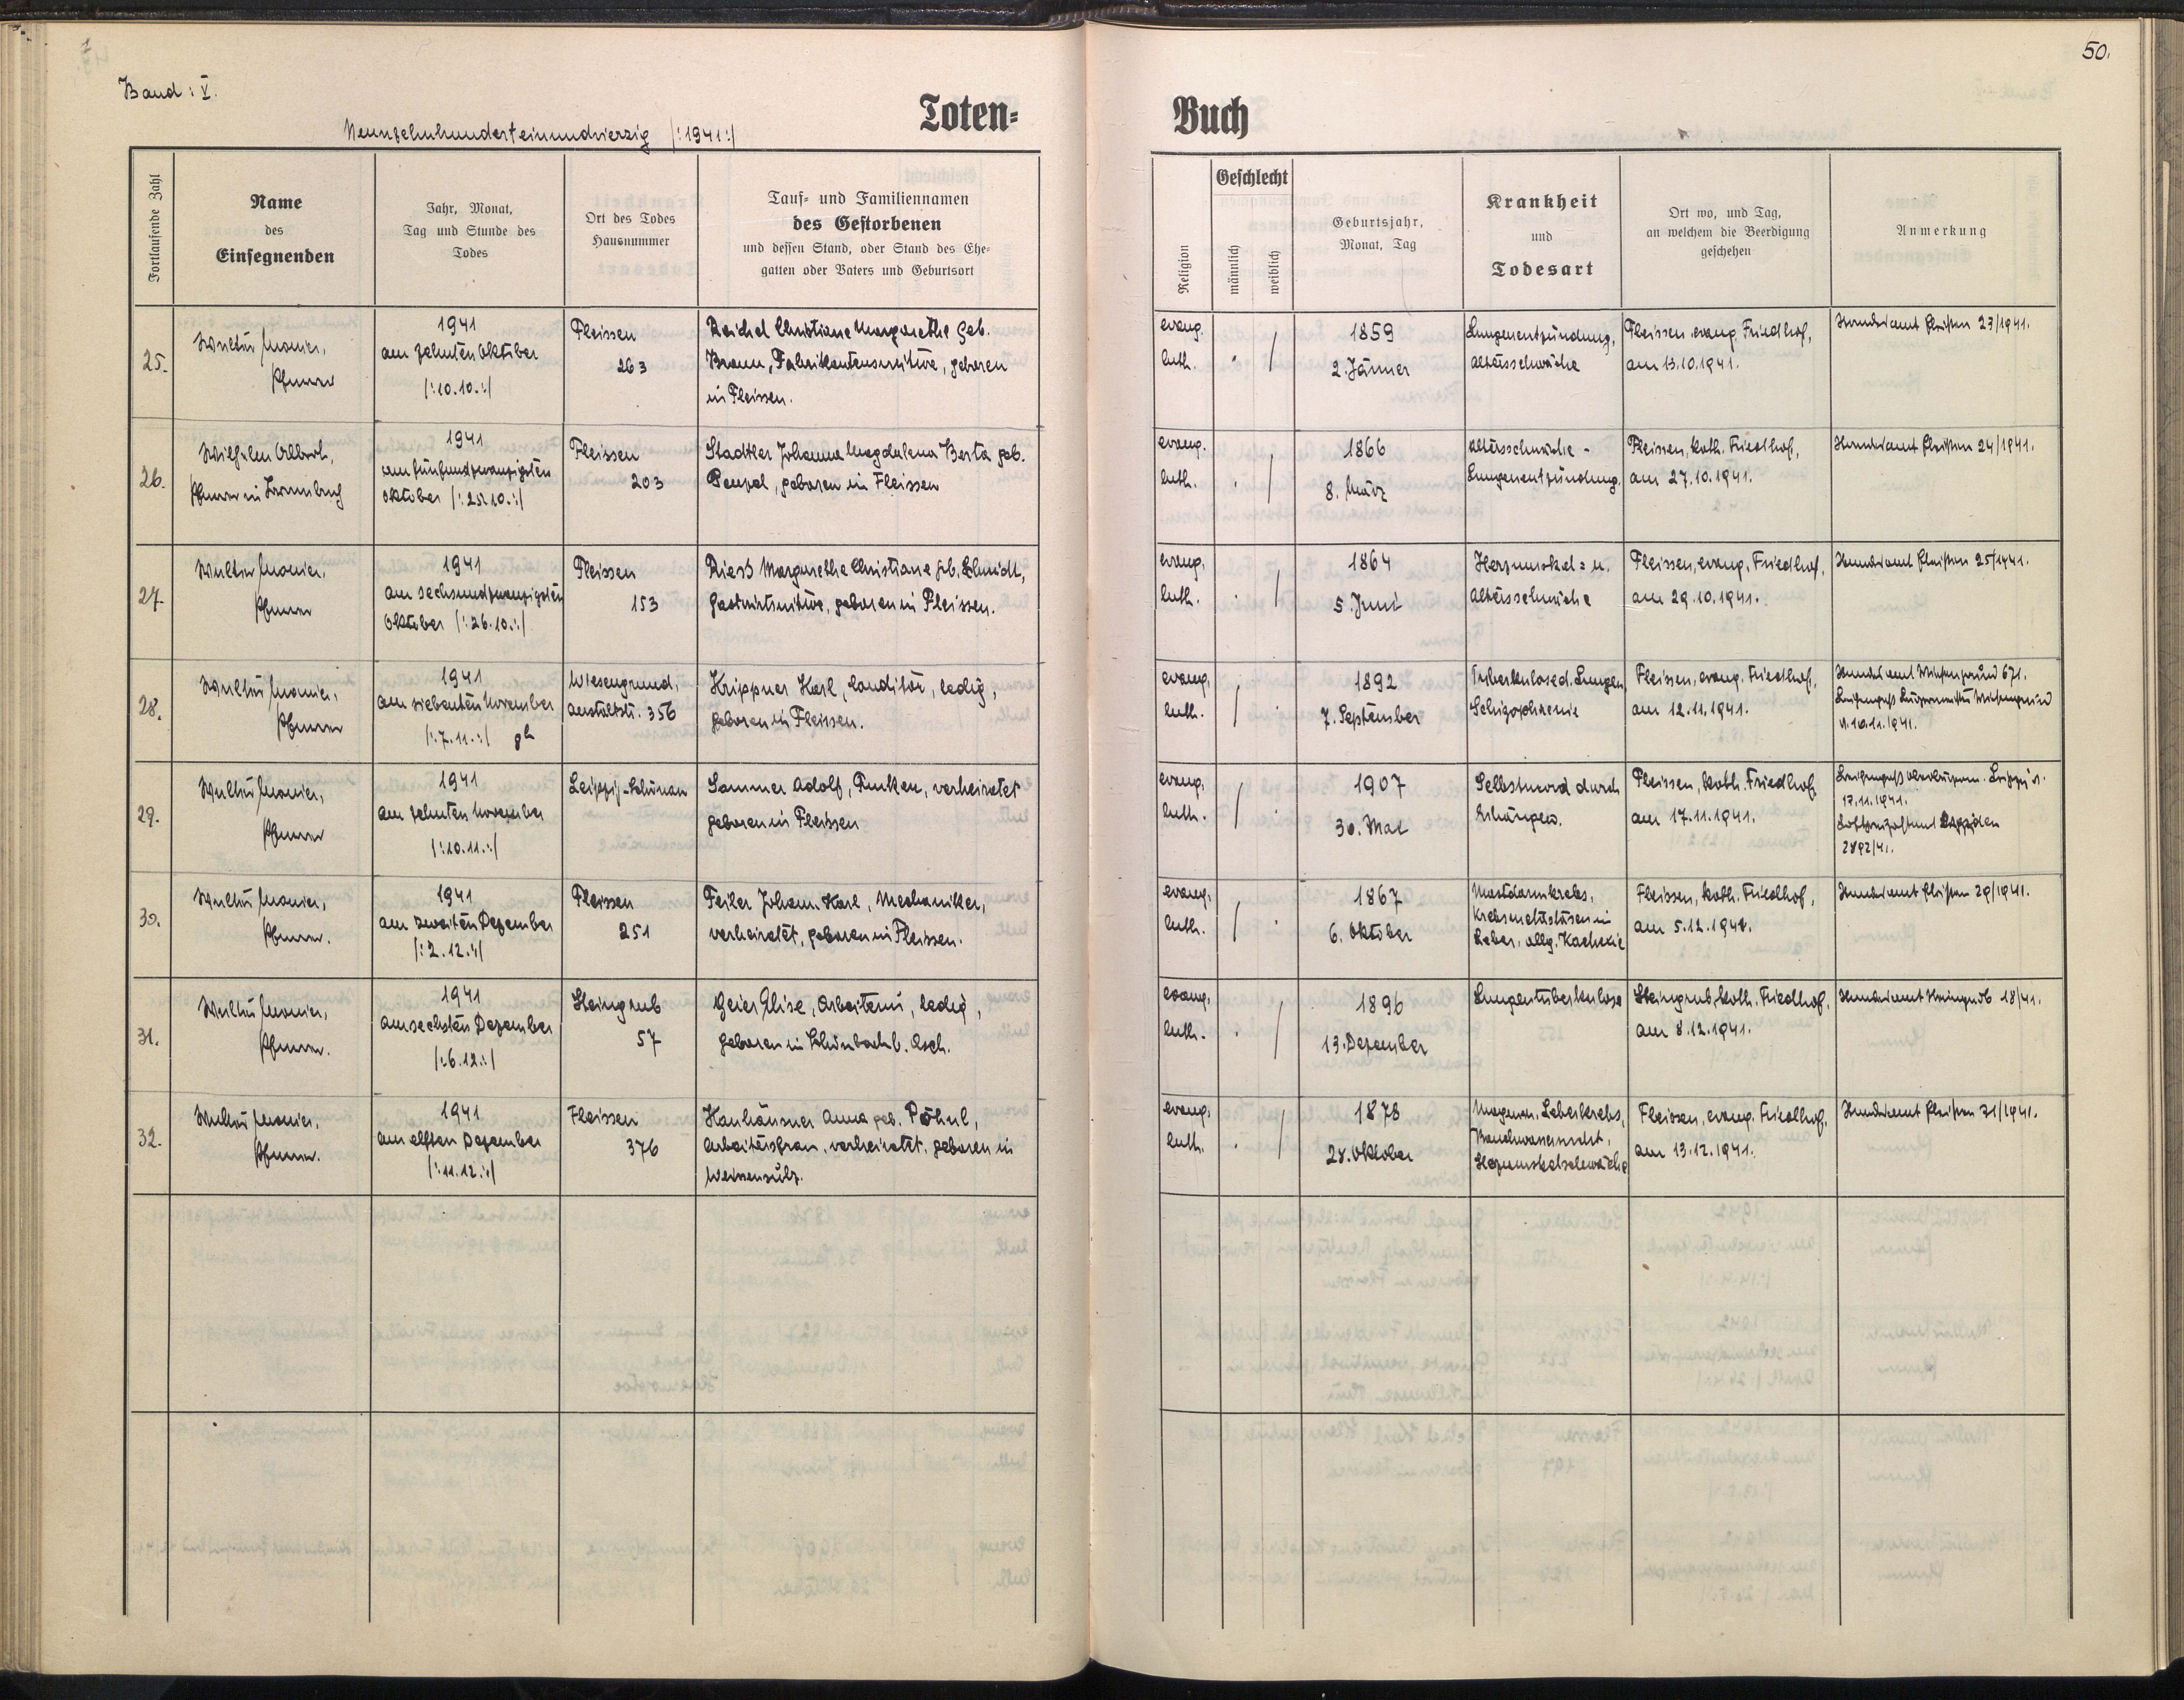 50.
Band: V.
Toten=
Buch
Neunzehnhunderteinundvierzig /:1941:/
Fortlaufende Zahl
Name
des
Einsegnenden
Jahr, Monat,
Tag und Stunde des
Todes
Ort des Todes
Hausnummer
Tauf= und Familiennamen
des Gestorbenen
und dessen Stand, oder Stand des Ehe=
gatten oder Vaters und Geburtsort
Religion
Geschlecht
männlich
weiblich
Geburtsjahr,
Monat, Tag
Krankheit
und
Todesart
Ort wo, und Tag,
an welchem die Beerdigung
geschehen
Anmerkung
25.
Pfarrer
1941
am zehnten Oktober
/:10.10.:/
Fleissen
263
Reichel Christiane Margarethe geb.
Braun, Fabrikantenswitwe, geboren
in Fleissen.
evang.
luth.
1859
2. Jänner
Lungenentzündung,
Altersschwäche
Fleissen, evang. Friedhof,
am 13.10.1941.
Standesamt Fleißen 23/1941.
26.
Pfarrer in
1941
am fünfundzwanzigsten
Oktober /:25.10.:/
Fleissen
203
Stadtler Johanna Magdalena Berta geb.
Penzel, geboren in Fleissen
evang.
luth.
1866
8. März
Altersschwäche -
Lungenentzündung.
Fleissen, kath. Friedhof,
am 27.10.1941.
Standesamt Fleißen 24/1941.
27.
Pfarrer
1941
am sechsundzwanzigsten
Oktober /:26.10.:/
Fleissen
153
Riess Margarethe Christiane geb. Schmidt,
Gastwirtswitwe, geboren in Fleissen.
evang.
luth.
1864
5. Juni
Herzmuskel= u.
Altersschwäche
Fleissen, evang. Friedhof,
am 29.10.1941.
Standesamt Fleißen 25/1941.
28.
Pfarrer
1941
am siebenten November
/:7.11.:/ 9h
Wiesengrund,
Anstaltstr. 356
Krippner Karl, Konditor, ledig,
geboren in Fleissen.
evang.
luth.
1892
7. September
Tuberkulose d. Lungen,
Schizophrenie
Fleissen, evang. Friedhof,
am 12.11.1941.
Standesamt Wiesengrund 671.
Leichenpaß Bürgermeister Wiesengrund
v. 10.11.1941.
29.
Pfarrer
1941
am zehnten November
/:10.11.:/
Leipzig-Schönau
Sammer Adolf, Funker, verheiratet
geboren in Fleissen
evang.
luth.
1907
30. Mai
Selbstmord durch
Erhängen.
Fleissen, kath. Friedhof
am 17.11.1941.
Leichenpaß Oberbürgerm. Leipzig v.
1941.
2892/41.
30.
Pfarrer.
1941
am zweiten Dezember
/:2.12.:/
Fleissen
251
Feiler Johann Karl, Mechaniker,
verheiratet, geboren in Fleissen.
evang.
luth.
1867
6. Oktober
Mastdarmkrebs,
Krebsmetastasen in
Leber, allg. Kachexie
Fleissen, kath. Friedhof,
am 5.12.1941.
Standesamt Fleißen 29/1941.
31.
Pfarrer.
1941
am sechsten Dezember
/:6.12.:/
Steingrub
57
Geier Elise, Arbeiterin, ledig,
geboren in Schönbach b. Asch.
evang.
luth.
1896
13. Dezember
Lungentuberkulose
Steingrub, kath. Friedhof,
am 8.12.1941.
Standesamt Steingrub 18/41.
32.
Pfarrer.
1941
am elften Dezember
/:11.12.:/
Fleissen
376
Hanhäuser Anna geb. Pöhnl,
Arbeitersfrau, verheiratet, geboren in
Weissensulz.
evang.
luth.
1878
28. Oktober
Magen, Leberkrebs,
Bauchwassersucht,
Herzmuskelschwäche
Fleissen, evang. Friedhof,
am 13.12.1941.
Standesamt Fleißen 31/1941.